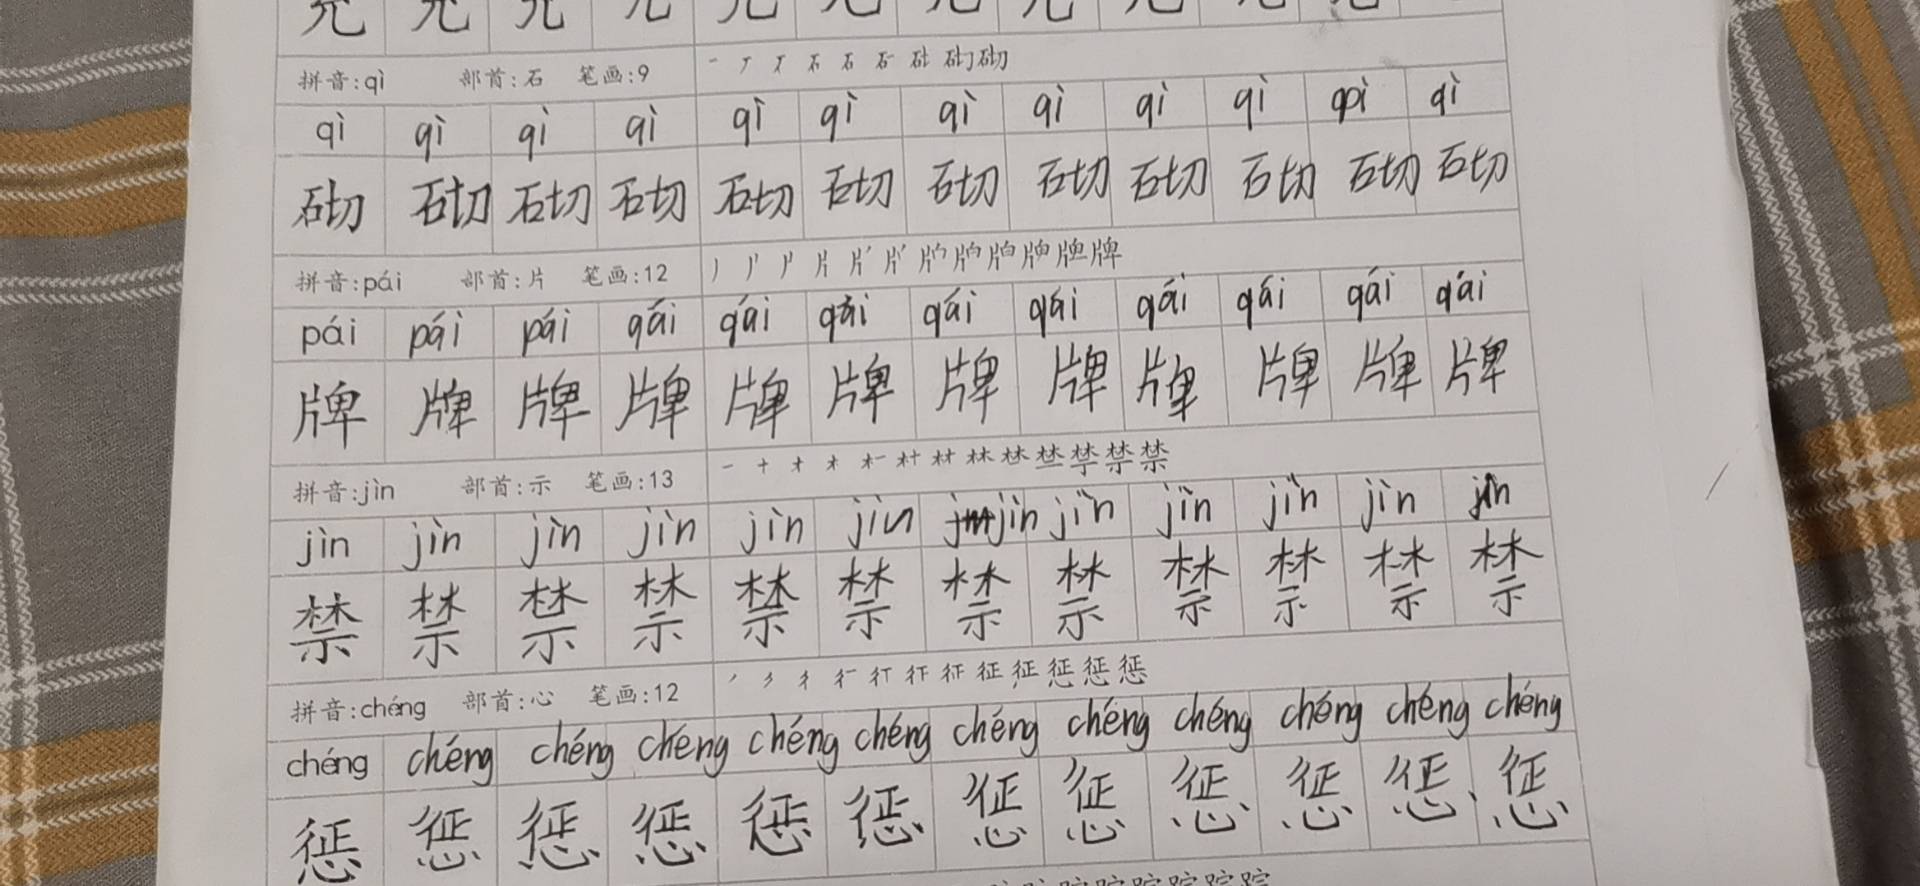 拼音:qì 部首:石 笔画:9 一 丆 丆 石 石 石 砌 砌 砌
qì qì qì qì qì qì qì qì qì qì qpì qì
砌 砌 砌 砌 砌 砌 砌 砌 砌 砌 砌 砌
拼音:pái 部首:片 笔画:12
pái pái pái qái qái qái qái qái qái qái qái qái
牌 牌 牌 牌 牌 牌 牌 牌 牌 牌 牌 牌
拼音:jìn 部首:示 笔画:13
jìn jìn jìn jìn jìn jìn jìn jìn jìn jìn jìn jìn
禁 禁 禁 禁 禁 禁 禁 禁 禁 禁 禁 禁
拼音:chéng 部首:心 笔画:12
chéng chéng chéng chéng chéng chéng chéng chéng chéng chéng chéng chéng
惩 惩 惩 惩 惩 惩 惩 惩 惩 惩 惩 惩